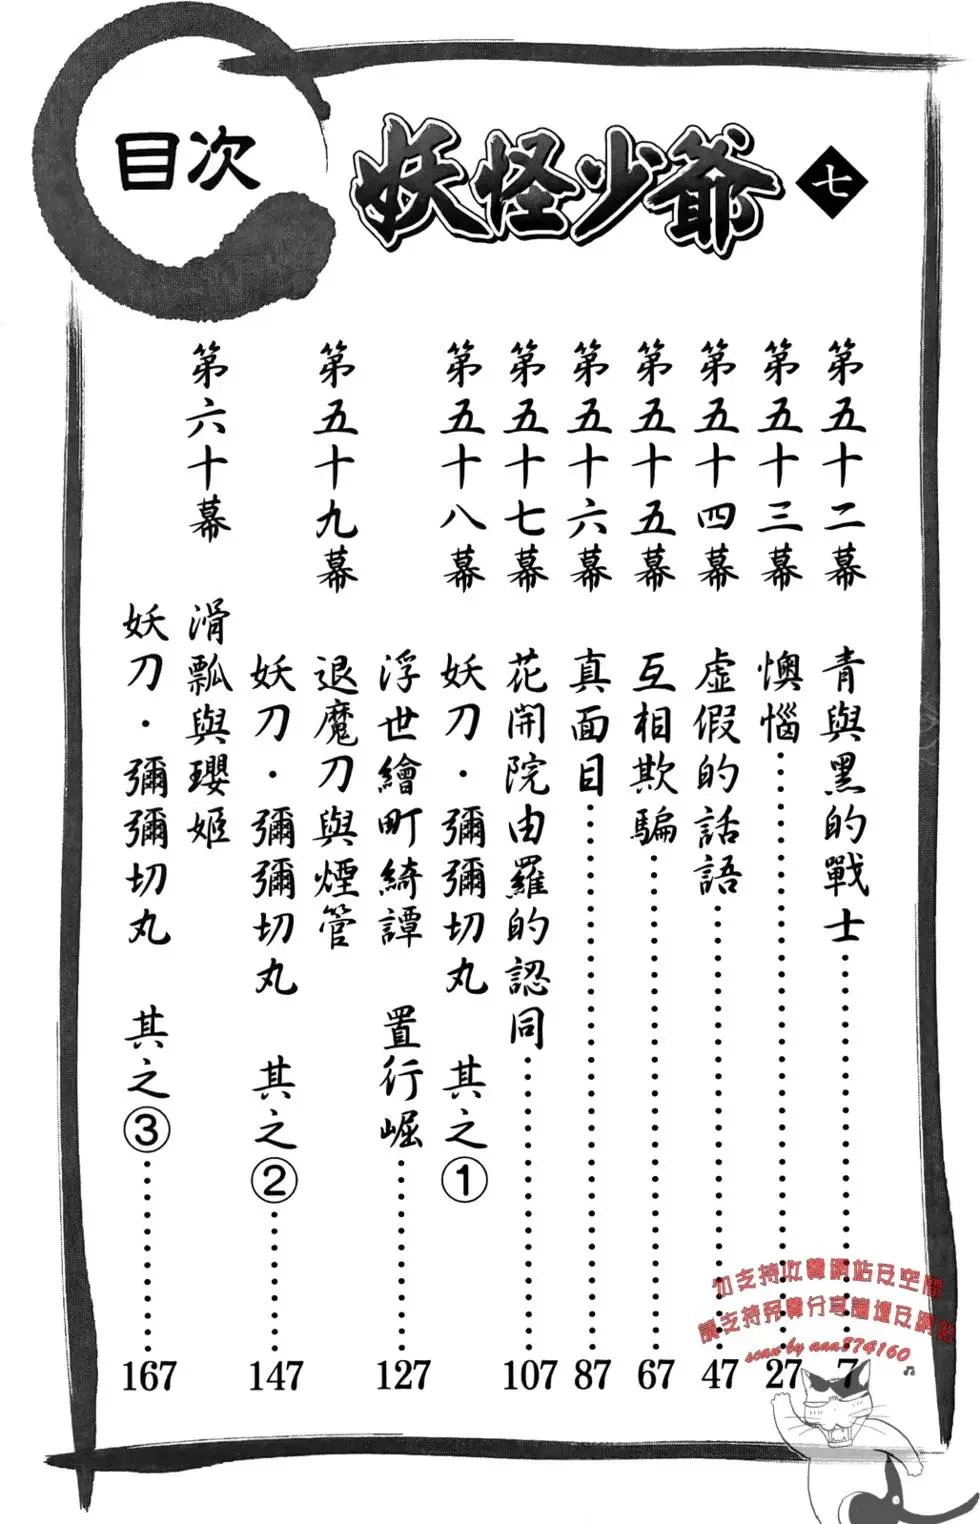 目次
妖怪少爺 七
第五十二幕 青與黑的戰士……7
第五十三幕 懊惱……27
第五十四幕 虛假的話語……47
第五十五幕 互相欺騙……67
第五十六幕 真面目……87
第五十七幕 花開院由羅的認同……107
第五十八幕 妖刀・彌彌切丸 其之①
浮世繪町綺譚 置行崛……127
第五十九幕 退魔刀與煙管
妖刀・彌彌切丸 其之②……147
第六十幕 滑瓢與瓔姬
妖刀・彌彌切丸 其之③……167
勿支持收費網站及空間
請支持免費分享論壇及網站
scan by aaa874160